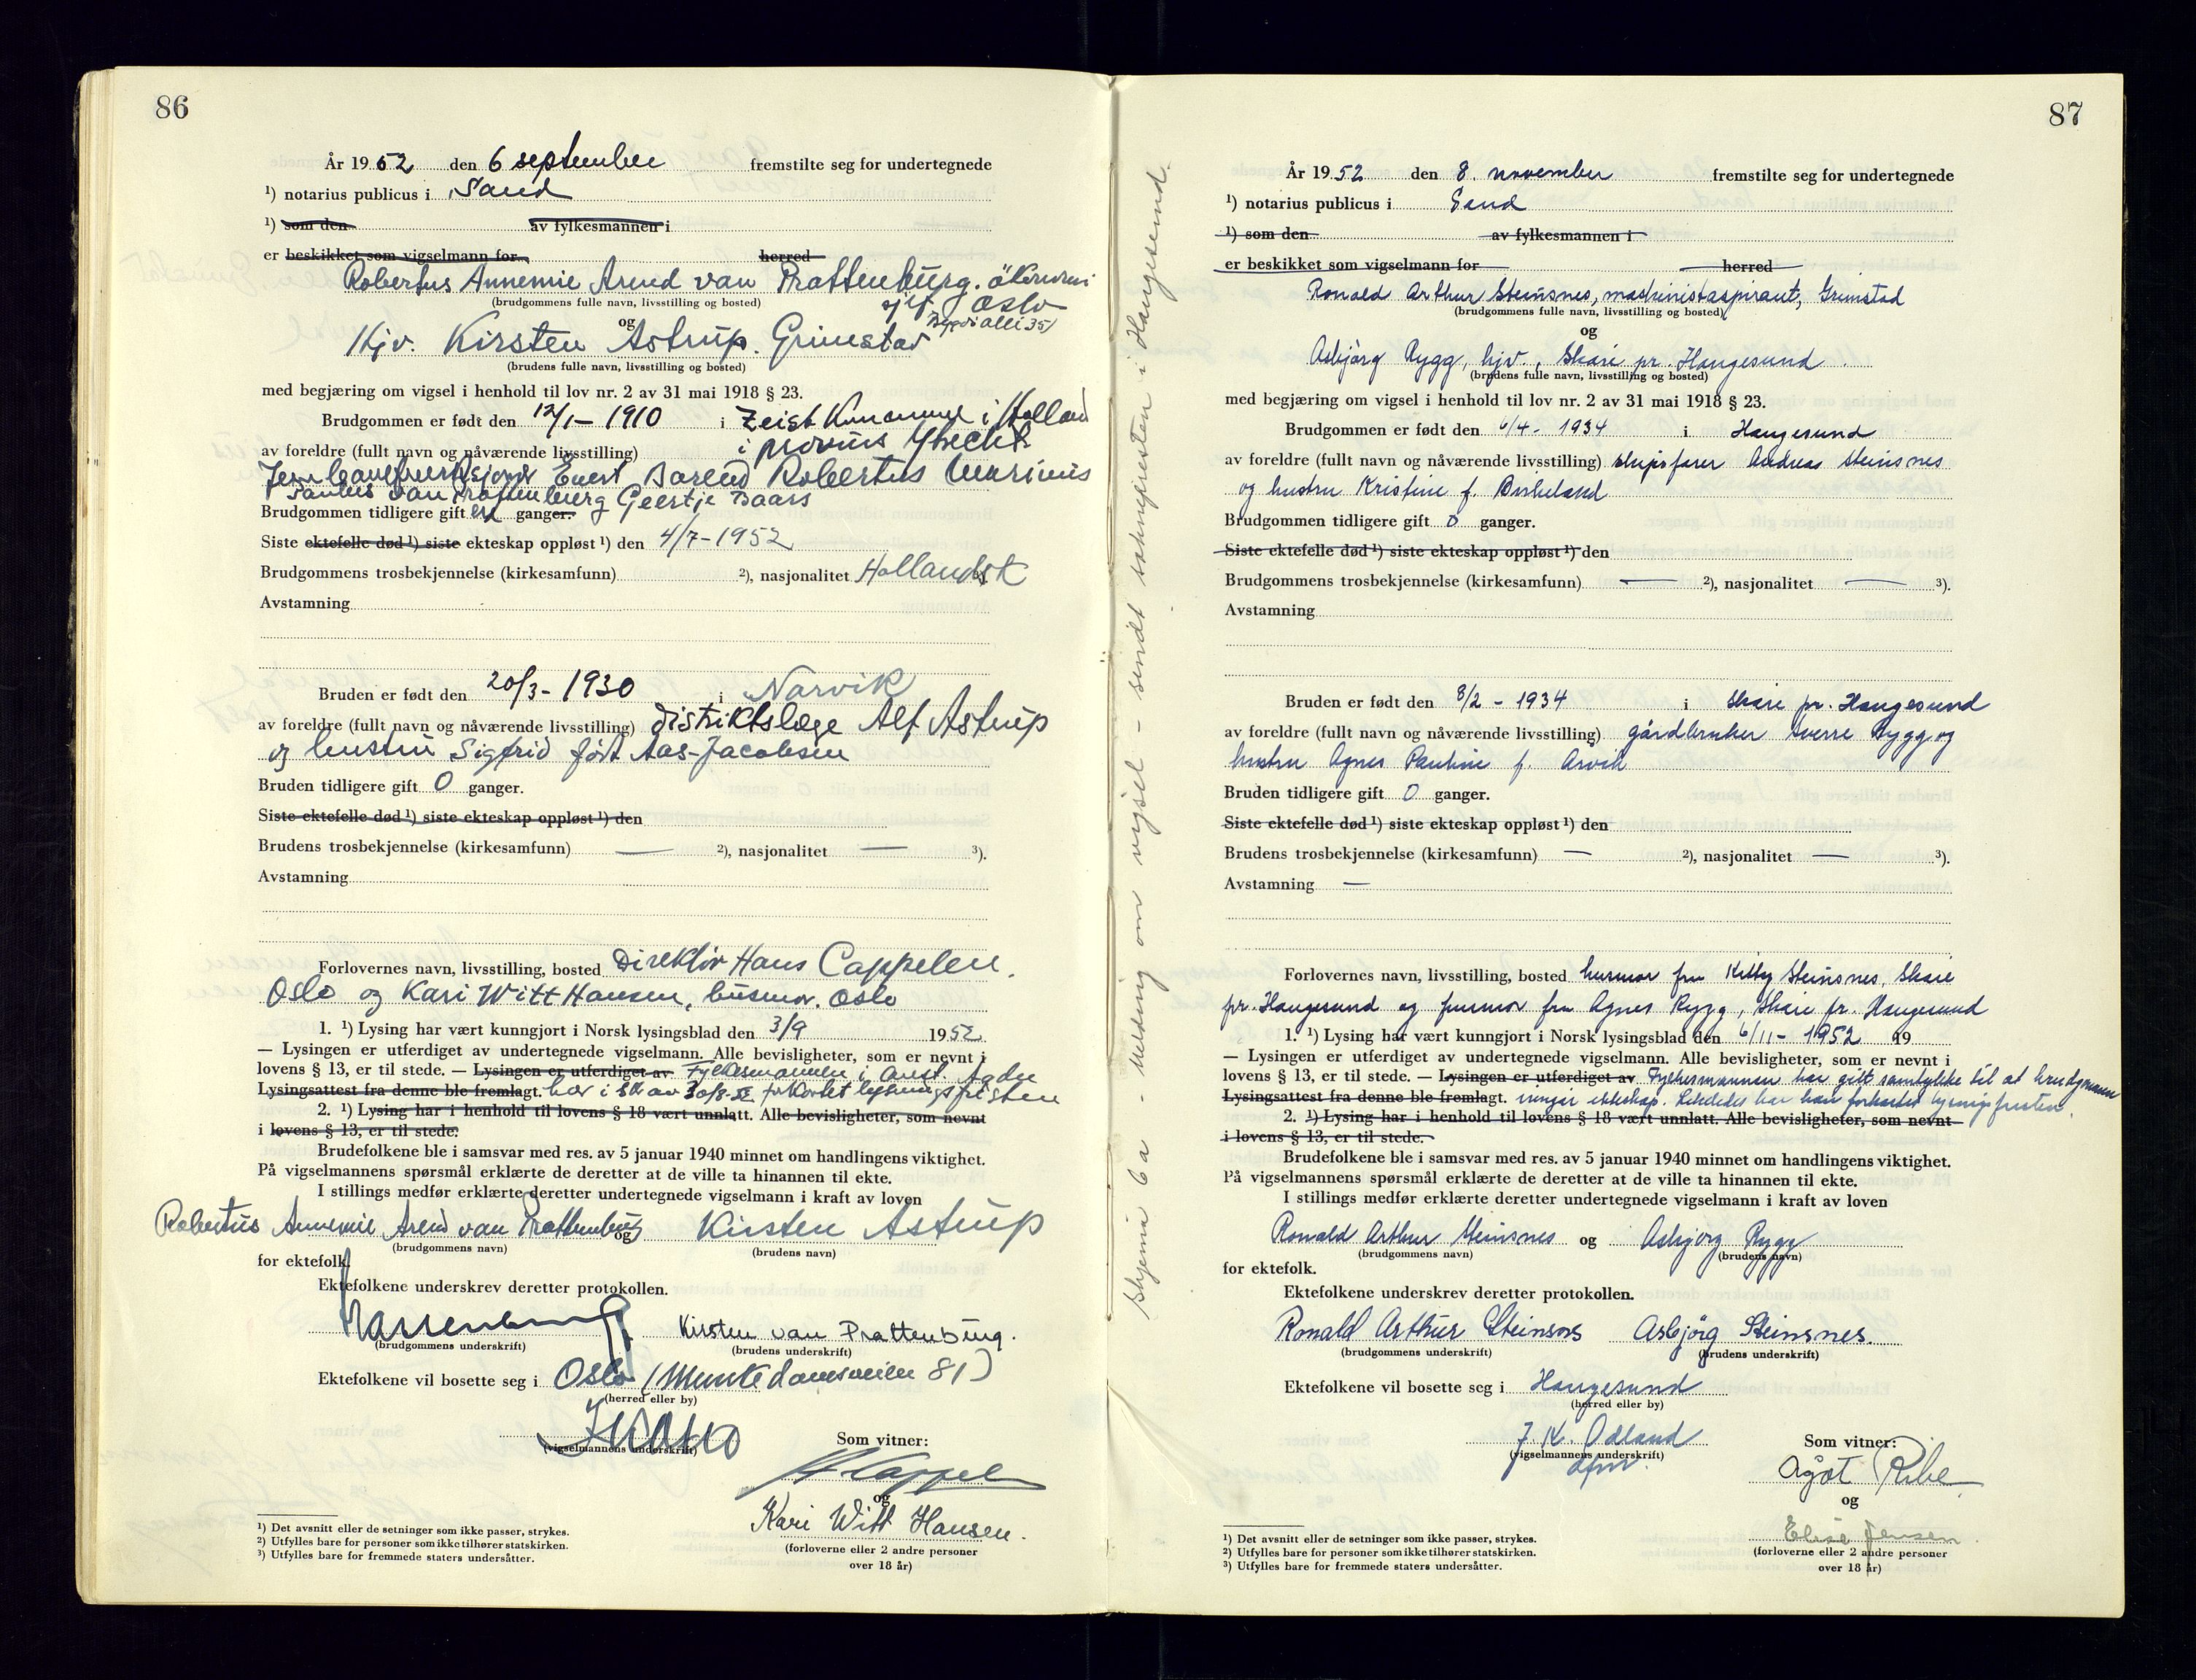 86
År 1952 den 6 september fremstilte seg for undertegnede
¹) notarius publicus i Sand
¹) som den av fylkesmannen i
er beskikket som vigselmann for herred
Robertus Annemie Arend van Prattenburg. økonomi
(brudgommens fulle navn, livsstilling og bosted) sjef Oslo
og Bygdø alle 35)
Hjv. Kirsten Astrup. Grimstad
(brudens fulle navn, livsstilling og bosted)
med begjæring om vigsel i henhold til lov nr. 2 av 31 mai 1918 § 23.
Brudgommen er født den 12/1 – 1910 i Zeist Kommune i Holland
av foreldre (fullt navn og nåværende livsstilling) i provins Utrecht
Evert Barend Robertus Marinus
Paulus van Prattenburg Geertje Baars
Brudgommen tidligere gift en ganger.
Siste ektefelle død ¹) siste ekteskap oppløst ¹) den 4/7-1952
Brudgommens trosbekjennelse (kirkesamfunn) ²), nasjonalitet Hollandsk
Avstamning
Bruden er født den 20/3- 1930 i Narvik
av foreldre (fullt navn og nåværende livsstilling) distriktslege Alf Astrup
og hustru Sigfrid født Aas-Jacobsen
Bruden tidligere gift 0 ganger.
Siste ektefelle død ¹) siste ekteskap oppløst ¹) den
Brudens trosbekjennelse (kirkesamfunn) — ²), nasjonalitet — ³).
Avstamning
Forlovernes navn, livsstilling, bosted Direktør Hans Cappelen.
Oslo og Kari Witt Hansen, husmor. Oslo
1. ¹) Lysing har vært kunngjort i Norsk lysingsblad den 3/9 1952.
— Lysingen er utferdiget av undertegnede vigselmann. Alle bevisligheter, som er nevnt i
lovens § 13, er til stede. — Lysingen er utferdiget av Fylkesmannen i Aust. Agder
Lysingsattest fra denne ble fremlagt. har i skr av 30/8-52 forkortet lysningsfristen
2. ¹) Lysing har i henhold til lovens § 18 vært unnlatt. Alle bevisligheter, som nevnt
i lovens § 13, er til stede.
Brudefolkene ble i samsvar med res. av 5 januar 1940 minnet om handlingens viktighet.
På vigselmannens spørsmål erklærte de deretter at de ville ta hinannen til ekte.
I stillings medfør erklærte deretter undertegnede vigselmann i kraft av loven
Robertus Annemie Arend van Prattenburg og Kirsten Astrup
(brudgommens navn) (brudens navn)
for ektefolk.
Ektefolkene underskrev deretter protokollen.
Kirsten van Prattenburg.
(brudgommens underskrift) (brudens underskrift)
Ektefolkene vil bosette seg i Oslo (Munkedamsveien 81)
(herred eller by)
(vigselmannens underskrift)
Som vitner:
og
Kari Witt Hansen.
(forloverne eller 2 andre personer
over 18 år)
¹) Det avsnitt eller de setninger som ikke passer, strykes.
²) Utfylles bare for personer som ikke tilhører statskirken.
³) Utfylles bare for fremmede staters undersåtter.
Skjema 6 a - Melding om vigsel - sendt soknepresten i Haugesund.
87
År 1952 den 8. november fremstilte seg for undertegnede
¹) notarius publicus i Sand
¹) som den av fylkesmannen i
er beskikket som vigselmann for herred
Ronald Arthur Steinsnes, maskinistaspirant, Grimstad
(brudgommens fulle navn, livsstilling og bosted)
og
Asbjörg Rygg, hjv., Skåre pr. Haugesund.
(brudens fulle navn, livsstilling og bosted)
med begjæring om vigsel i henhold til lov nr. 2 av 31 mai 1918 § 23.
Brudgommen er født den 6/4- 1934 i Haugesund
av foreldre (fullt navn og nåværende livsstilling) skipsfører Andreas Steinsnes
og hustru Kristine f. Birkeland
Brudgommen tidligere gift 0 ganger.
Siste ektefelle død ¹) siste ekteskap oppløst ¹) den
Brudgommens trosbekjennelse (kirkesamfunn) — ²), nasjonalitet — ³).
Avstamning
Bruden er født den 8/2 - 1934 i Skåre pr. Haugesund
av foreldre (fullt navn og nåværende livsstilling) gårdbruker Sverre Rygg og
hustru Agnes Pauline f. Arvik
Bruden tidligere gift 0 ganger.
Siste ektefelle død ¹) siste ekteskap oppløst ¹) den
Brudens trosbekjennelse (kirkesamfunn) — ²), nasjonalitet — ³).
Avstamning —
Forlovernes navn, livsstilling, bosted husmor fru Kitty Steinsnes, Skåre
pr. Haugesund og husmor fru Agnes Rygg, Skåre pr. Haugesund
1. ¹) Lysing har vært kunngjort i Norsk lysingsblad den 6/11- 1952 19
— Lysingen er utferdiget av undertegnede vigselmann. Alle bevisligheter, som er nevnt i
lovens § 13, er til stede. — Lysingen er utferdiget av Fylkesmannen har gitt samtykke til at brudgommen
Lysingsattest fra denne ble fremlagt. inngår ekteskap. Likeledes har han forkortet lysningsfristen.
2. ¹) Lysing har i henhold til lovens § 18 vært unnlatt. Alle bevisligheter, som nevnt
i lovens § 13, er til stede.
Brudefolkene ble i samsvar med res. av 5 januar 1940 minnet om handlingens viktighet.
På vigselmannens spørsmål erklærte de deretter at de ville ta hinannen til ekte.
I stillings medfør erklærte deretter undertegnede vigselmann i kraft av loven
Ronald Arthur Steinsnes og Asbjørg Rygg
(brudgommens navn) (brudens navn)
for ektefolk.
Ektefolkene underskrev deretter protokollen.
Ronald Arthur Steinsnes Asbjörg Steinsnes.
(brudgommens underskrift) (brudens underskrift)
Ektefolkene vil bosette seg i Haugesund
(herred eller by)
J. K. Ødland
(vigselmannens underskrift)
dfm.
Som vitner:
Ågot Ribe
og
Elise Jensen
(forloverne eller 2 andre personer
over 18 år)
¹) Det avsnitt eller de setninger som ikke passer, strykes.
²) Utfylles bare for personer som ikke tilhører statskirken.
³) Utfylles bare for fremmede staters undersåtter.